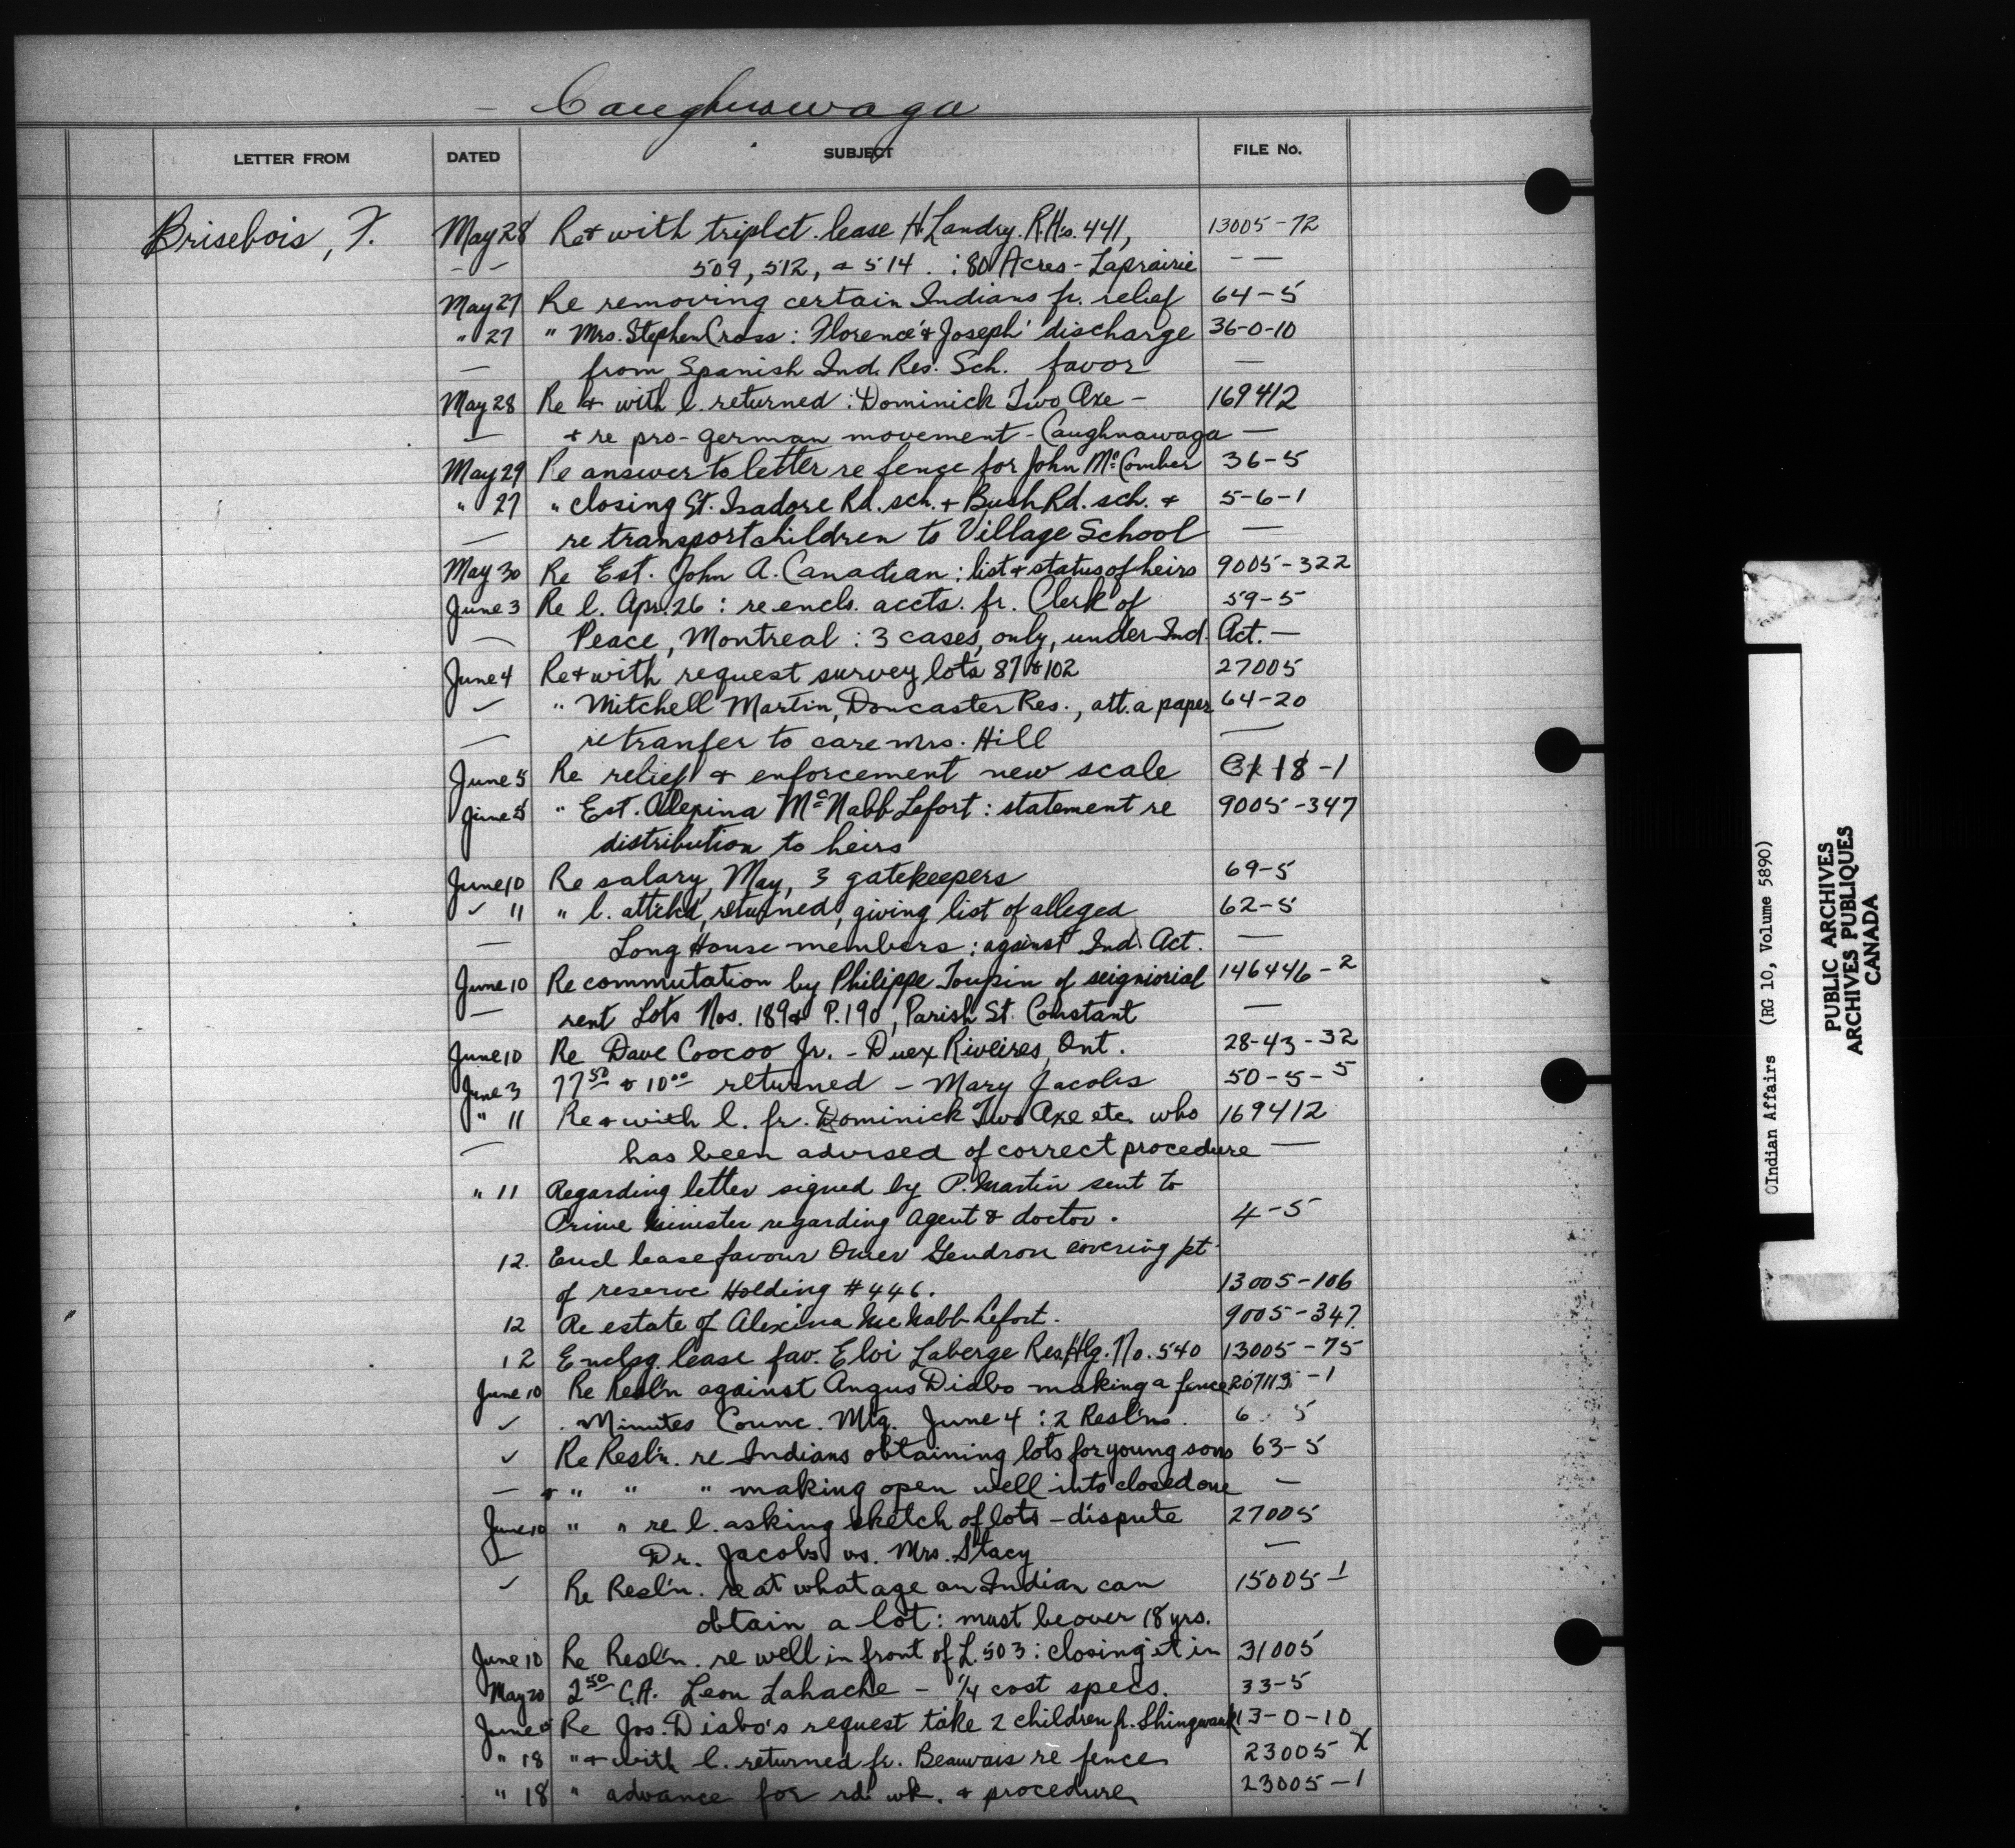 Caughnawaga
LETTER FROM DATED SUBJECT FILE No.
Brisebois, F. May 28 Re + with triplct. lease H. Landry. R.Hs. 441, 13005-72
509, 512, + 514. : 80 Acres - Laprairie — —
May 27 Re removing certain Indians fr. relief 64-5
" 27 " Mrs. Stephen Cross: Florence' + Joseph' discharge 36-0-10
— from Spanish Ind. Res. Sch. favor —
May 28 Re + with l. returned: Dominick Two Axe - 169412
— + re pro-german movement - Caughnawaga —
May 29 Re answer to letter re fence for John McComber 36-5
" 27 " closing St. Isadore Rd. sch. + Bush Rd. sch. + 5-6-1
— re transport children to Village School —
May 30 Re Est. John A. Canadian: list + status of heirs 9005-322
June 3 Re l. Apr. 26: re encls. accts. fr. Clerk of 59-5
— Peace, Montreal: 3 cases, only, under Ind. Act. —
June 4 Re + with request survey lots 87 + 102 27005
✓ " Mitchell Martin, Doncaster Res., att. a paper 64-20
— re tranfer to care Mrs. Hill —
June 5 Re relief + enforcement new scale 18-1
June 5 " Est. Alexina McNabb Lefort: statement re 9005-347
distribution to heirs
June 10 Re salary, May, 3 gatekeepers 69-5
✓ 11 " l. attchd, returned, giving list of alleged 62-5
— Long House members: against Ind. Act. —
June 10 Re commutation by Philippe Toupin of seigniorial 146446-2
— rent Lots Nos. 189 + P.190, Parish St. Constant —
June 10 Re Dave Coocoo Jr. - Duex Riveires, Ont. 28-43-32
June 3 77 50 + 10 00 returned - Mary Jacobs 50-5-5
" 11 Re + with l. fr. Dominick Two Axe etc. who 169412
— has been advised of correct procedure —
" 11 Regarding letter signed by P. Martin sent to
Prime Minister regarding Agent & doctor. 4-5
12. Encl lease favour Omer Gendron covering pt.
of reserve Holding #446. 13005-106
12 Re estate of Alexina McNabb Lefort. 9005-347.
12 Enclsg. lease fav. Eloi Laberge Res. Hlg. No. 540 13005-75
June 10 Re Resl'n against Angus Diabo making a fence 207113-1
✓ . Minutes Counc. Mtg. June 4: 2 Resl'ns. 6 5
✓ Re Resl'n. re Indians obtaining lots for young sons 63-5
— + " " " making open well into closed one —
June 10 " " re l. asking sketch of lots - dispute 27005
✓ Dr. Jacobs vs. Mrs. Stacy —
✓ Re Resl'n. re at what age an Indian can 15005-1
obtain a lot: must be over 18 yrs.
June 10 Re Resl'n. re well in front of L. 503: closing it in 31005
May 20 2 50 C.A. Leon Lahache - 1/4 cost specs. 33-5
June Re Jos. Diabo's request take 2 children fr. Shingwauk 13-0-10
" 18 " + with l. returned fr. Beauvais re fence 23005 X
" 18 " advance for rd. wk. + procedure 23005-1
©Indian Affairs (RG 10, Volume 5890)
PUBLIC ARCHIVES
ARCHIVES PUBLIQUES
CANADA